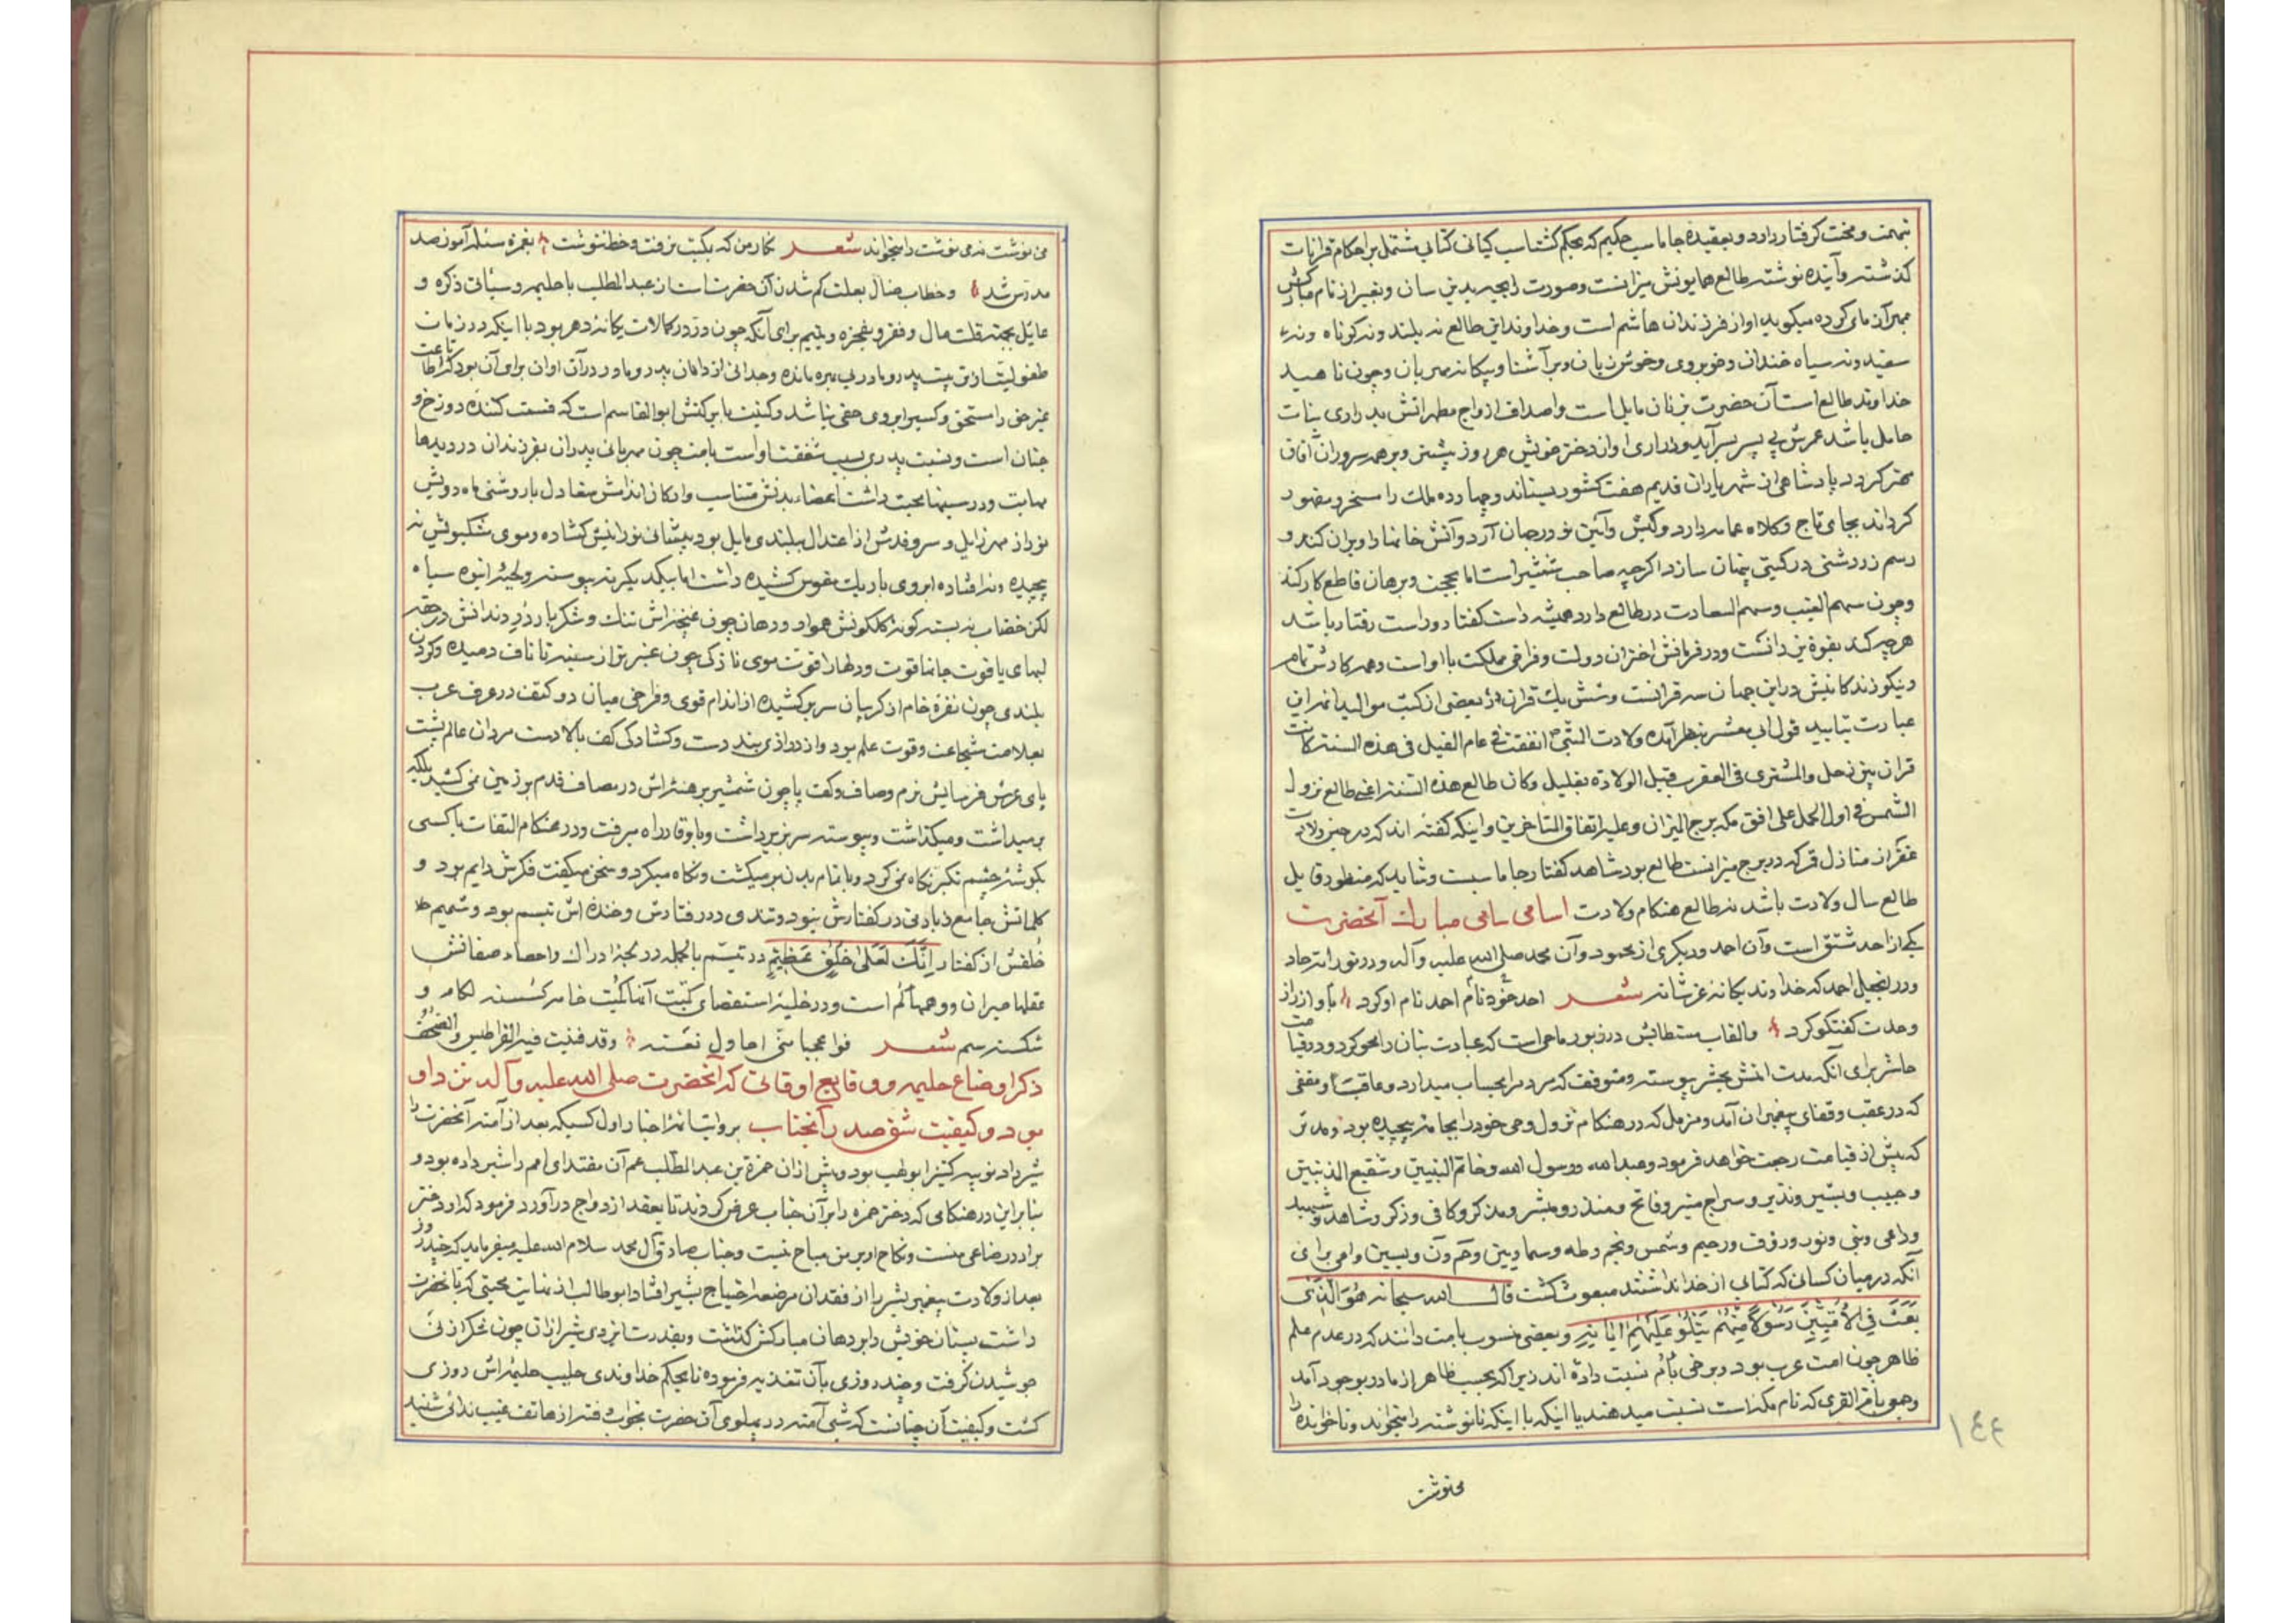 بتهمت و محنت گرفتار دارد و بعقیده جاماسب حکیم که بحکم گشتاسب کیانی کتابی مشتمل بر احکام قرانات
گذشته و آینده نوشته طالع همایونش میزانست و صورت زایجه بدین سان و تعبیر از نام مبارکش
بمهرآزمای کرده میگوید او از فرزندان هاشم است و خداوند این طالع نه بلند و نه کوتاه و نه
سفید و نه سیاه خندان و خوبروی و خوش زبان و بر آشنا و بیکانه مهربان و چون ناهید
خداوند طالع است آن حضرت بزنان مایل است و اصداف ازواج مطهراتش بدراری بنات
حامل باشد عمرش بی پسر بسر آید و ذراری او از دختر خویش هر روز بیشتر و بر همه سروران آفاق
مهتر گردد پادشاهی از شهریاران قدیم هفت کشور بستاند و چهارده ملک را مسخر و مقهور
گرداند بجای تاج و کلاه عمامه دارد و کیش و آئین نو در جهان آرد و آتش خانها را ویران کند و
رسم زردشتی در گیتی پنهان سازد اگرچه صاحب شمشیر است اما بحجت و برهان قاطع کار کند
و چون سهم الغیب و سهم السعادت در طالع دارد همیشه راست گفتار و راست رفتار باشد
هرچه کند بقوة دین و دانست و در فرمانش اختران دولت و فراخی مملکت با او است و همه کارش تمام
و نیکو زندکانیش در این جهان سه قرانست و شش یک قران و در بعضی از کتب موالید نیز این
عبارت بتایید قول ابی معشر بنظر آمده ولادت النبی ص اتفقت فی عام الفیل فی هذه السنة کانت
قران بین زحل و المشتری فی العقرب قبل الولادة بقلیل و کان طالع هذه السنة اعنی طالع نزول
الشمس فی اول الحمل علی افق مکه برج المیزان و علیه اتفاق المتاخرین و اینکه گفته اند که در حین ولادت
غفر از منازل قمر که در برج میزانست طالع بود شاهد گفتار جاماسب است و شاید که منظور قایل
طالع سال ولادت باشد نه طالع هنکام ولادت اسامی سامی مبارک آنحضرت
یکی از احد مشتق است و آن احمد و دیگری از محمود و آن محمد صلی الله علیه و آله و در توراتیه حاد
و در انجیل احمد که خداوند یکانه عز شانه شعر احد خود نام احمد نام او کرد باو از راز
وحدت گفتگو کرد و القاب مستطابش در زبور ماحی است که عبادت بتان را محو کرد و در قیامت
حاشر برای آنکه مدت امتش بحشر پیوسته و متوقف که مردم را بحساب میدارد و عاقب و مقفی
که در عقب و قفای پیغمبران آمد و مزمل که در هنکام نزول وحی خود را بجامه پیچیده بود و مدثر
که پیش از قیامت رجعت خواهد فرمود و عبد الله و رسول الله و خاتم النبیین و شفیع المذنبین
و حبیب و بشیر و نذیر و سراج منیر و فاتح و منذر و مبشر و مذکر و کافی و ذکر و شاهد و شهید
و داعی و نبی و نور و رؤف و رحیم و شمس و نجم و طه و سما و تین و حم و ن و یسین و امی برای
آنکه در میان کسانی که کتابی از خدا نداشتند مبعوث گشت قال الله سبحانه هو الذی
بعث فی الامیین رسولا منهم یتلو علیهم ایاته و بعضی منسوب بامت دانند که در عدم علم
ظاهر چون امت عرب بود و برخی بام نسبت داده اند زیرا که بحسب ظاهر از مادر بوجود آمد
و جمعی بام القری که نام مکه است نسبت میدهند یا اینکه با اینکه نانوشته را میخواند و ناخوانده را
مینوشت
۱۴۴
می نوشت نمی نوشت را میخواند شعر نکار من که بمکتب نرفت و خط ننوشت بغمزه مسئله آموز صد
مدرس شد و خطاب ضال بعلت گم شدن آن حضرت است از عبد المطلب یا حلیمه و سیأتی ذکره و
عایل بجهت قلت مال و فقر و یتیم برای آنکه چون در در کمالات یکانه دهر بود یا اینکه در زمان
طفولیت از تربیت پدر و مادر بی بهره مانده و جدائی از دامان پدر و مادر در آن اوان برای آن بود که اطاعت
غیر حق را مستحق و کسی را بر وی حقی نباشد و کنیت بابرکتش ابو القاسم است که قسمت کننده دوزخ و
جنان است و نسبت پدری بسبب شفقت او است بامت چون مهربانی پدران بفرزندان در دیدها
مهابت و در سینها محبت داشت اعضاء بدنش متناسب و ارکان اندامش متعادل با روشنی ماه رویش
نور از مهر زایل و سرو قدش از اعتدال ببلندی مایل بود پیشانی نورانیش گشاده و موی مشکبویش نه
پیچیده و نه افتاده ابروی باریک مقوس کشیده داشت اما بیکدیگر نه پیوسته و لحیه انبوه سیاه
لکن خضاب نه بسته گونه گلگونش هموار و دهان چون غنچه اش تنک و شکر بار درر دندانش در حقه
لبهای یاقوت جانها قوت و دلها را قوت موی نازکی چون عنبر تر از سینه تا ناف دمیده و گردن
بلندی چون نقره خام از گریبان سر بر کشیده از اندام قوی و فراخی میان دو کتف در عرف عرب
بعلامت شجاعت و قوت علم بود و از درازی بند دست و گشادگی کف بالا دست مردان عالم پشت
پای عرش فرسایش نرم و صاف و کف پا چون شمشیر برهنه اش در مصاف قدم بر زمین نمی کشید بلکه
برمیداشت و میگذاشت و پیوسته سر بزیر داشت و باوقار راه میرفت و در هنکام التفات با کسی
بگوشه چشم تکبر نکاه نمی کرد و با تمام بدن برمیگشت و نگاه میکرد و سخن میگفت فکرش دایم بود و
کلماتش جامع زیادتی در گفتارش نبود و تندی در رفتارش و خنده اش تبسم بود و شمیم
خلقش از گفتار انک لعلی خلق عظیم در تبسم بالجمله در لجه ادراک و احصاء صفاتش
عقلها حیران و وهمها گم است و در حلبه استقصای کتب آنها کمیت خامه گسسته لگام و
شکسته سم شعر فوا عجبا منی احاول نعته وقد فنیت فیه القراطیس و الصحف
ذکر اوضاع حلیمه و وقایع اوقاتی که آنحضرت صلی الله علیه و آله نزد او
بود و کیفیت شق صدر آنجناب بروایت نقله اخبار اول کسیکه بعد از آمنه آنحضرت را
شیر داد ثویبه کنیز ابو لهب بود و پیش از آن حمزة بن عبد المطلب عم آن مقتدای امم را شیر داده بود و
بنابراین در هنکامی که دختر حمزه را بر آن جناب عرض کردند تا بعقد ازدواج درآورد فرمود که او دختر
برادر رضاعی منست و نکاح او بر من مباح نیست و جناب صادق آل محمد سلام الله علیه میفرماید که چند روز
بعد از ولادت پیغمبر بشر را از فقدان مرضعه احتیاج بشیر افتاد ابو طالب از نهایت محبتی که با آنحضرت
داشت پستان خویش را بر دهان مبارکش گذاشت و بقدرت ایزدی شیر از آن چون شکر از نی
جوشیدن گرفت و چند روزی بآن تغذیه فرموده تا بحکم خداوندی حلیب حلیمه اش روزی
گشت و کیفیت آن چنانست که شبی آمنه در پهلوی آن حضرت بخواب رفته از هاتف غیب ندائی شنید